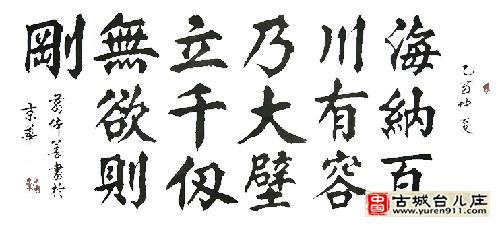 乙酉仲夏
海納百
川有容
乃大壁
立千仞
無欲則
剛
京華
中国
古城台儿庄
www.yuren911.com